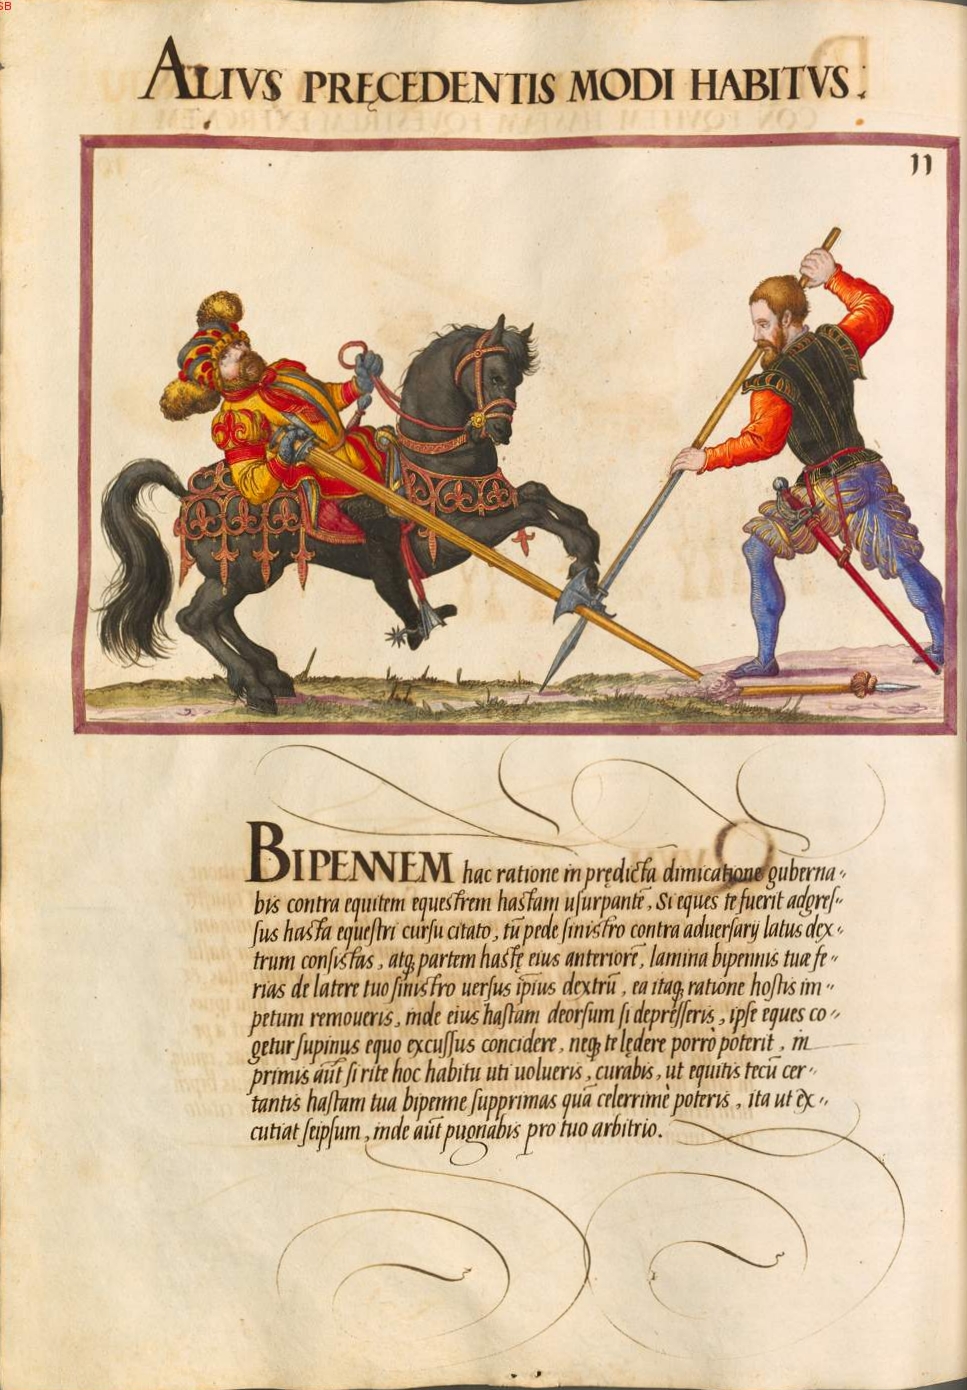 SB
ALIVS PRĘCEDENTIS MODI HABITVS.
11
BIPENNEM hac ratione in prędicta dimicatione guberna-
bis contra equitem equestrem hastam uſurpantē, Si eques te fuerit adgreſ-
ſus hasta equeſtri curſu citato, tū pede ſinistro contra aduerſarij latus dex-
trum conſistas, atq; partem hastę eius anteriorē, lamina bipennis tuæ fe-
rias de latere tuo ſinistro uerſus ipſius dextrū, ea itaq; ratione hoſtis im-
petum remoueris, inde eius haſtam deorſum ſi depreſſeris, ipſe eques co-
getur ſupinus equo excuſſus concidere, neq; te lędere porrò poterit, in
primis aūt ſi rite hoc habitu uti uolueris, curabis, ut equitis tecū cer-
tantis haſtam tua bipenne ſupprimas quā celerrimè poteris, ita ut ex-
cutiat ſeipſum, inde aūt pugnabis pro tuo arbitrio.